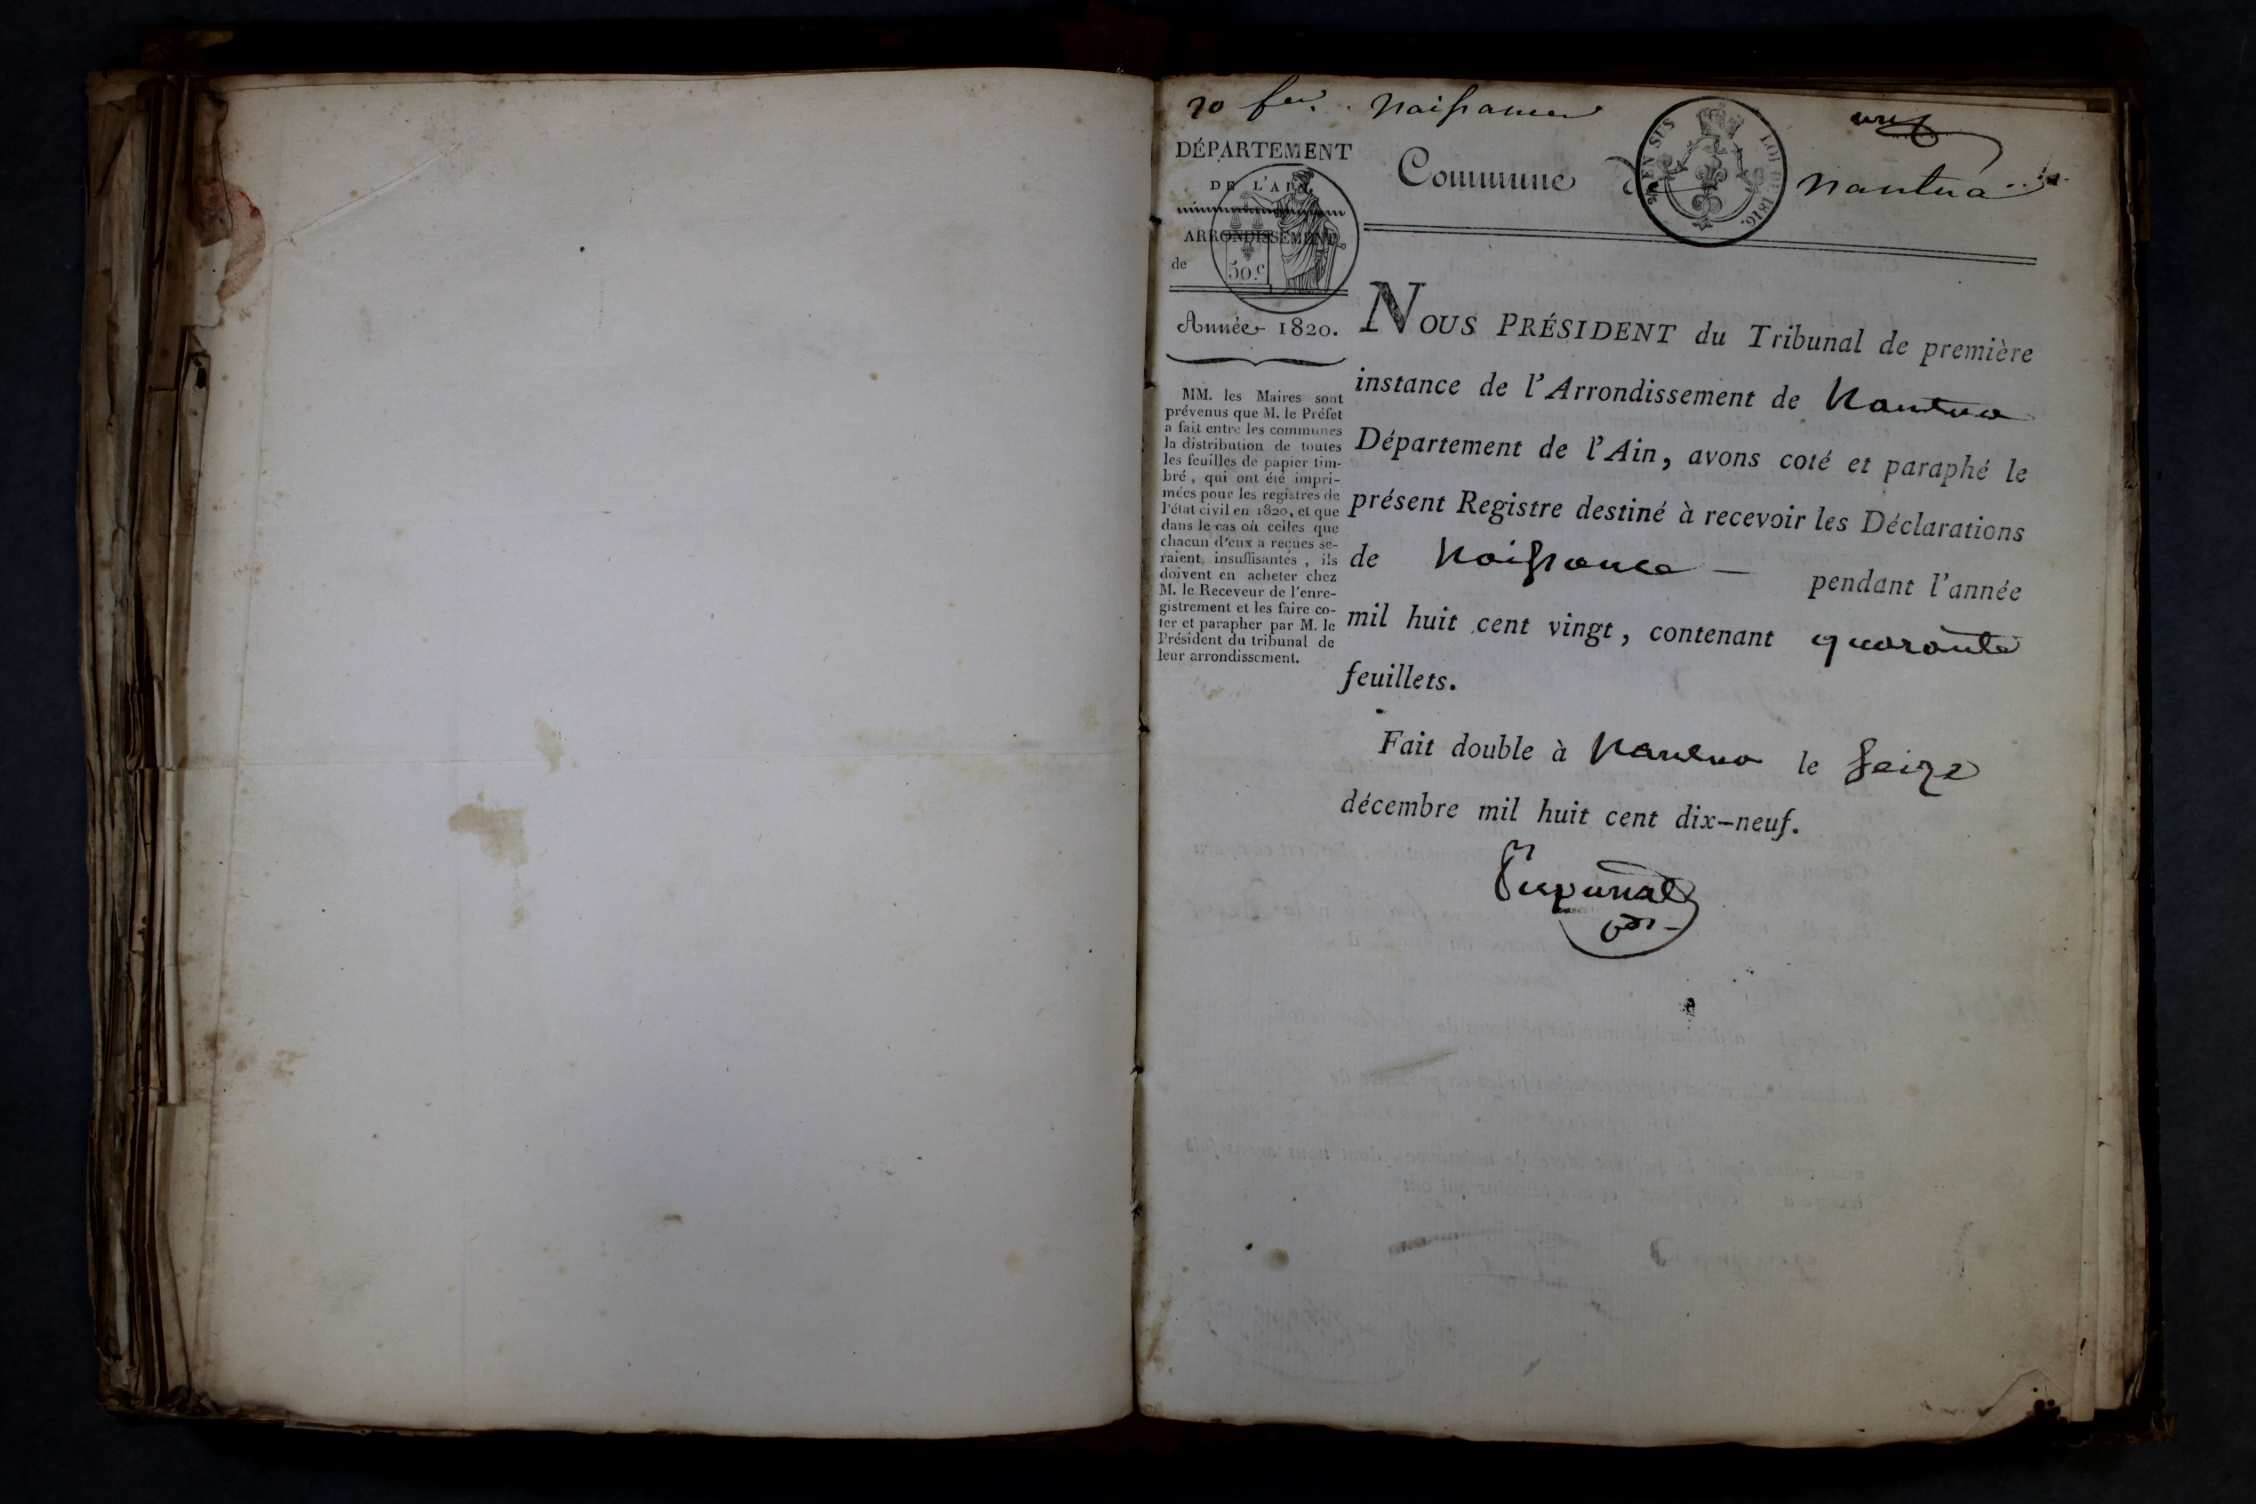 naissances
un
DÉPARTEMENT
DE L'AIN,
Commune de Nantua
EN SUS LOI DE 1816.
ARRONDISSEMENT
de
50.c
Année 1820.
MM. les Maires sont
prévenus que M. le Préfet
a fait entre les communes
la distribution de toutes
les feuilles de papier tim-
bré, qui ont été impri-
mées pour les registres de
l'état civil en 1820, et que
dans le cas où celles que
chacun d'eux a reçues se-
raient insuffisantes, ils
doivent en acheter chez
M. le Receveur de l'enre-
gistrement et les faire co-
ter et parapher par M. le
Président du tribunal de
leur arrondissement.
NOUS PRÉSIDENT du Tribunal de première
instance de l'Arrondissement de Nantua
Département de l'Ain, avons coté et paraphé le
présent Registre destiné à recevoir les Déclarations
de Naissance — pendant l'année
mil huit cent vingt, contenant quarante
feuillets.
Fait double à Nantua le Seize
décembre mil huit cent dix-neuf.